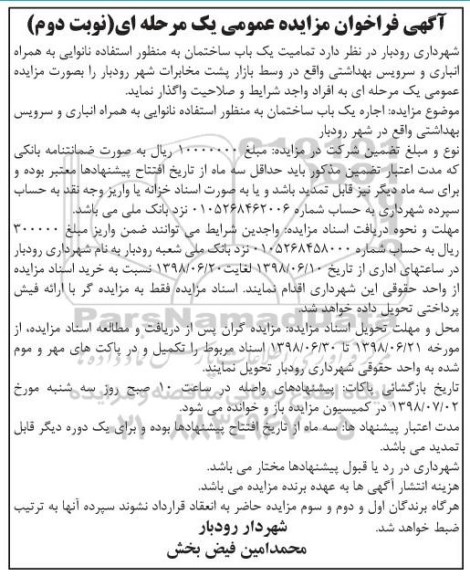 آگهی فراخوان مزایده عمومی یک مرحله ای(نوبت دوم)
شهرداری رودبار در نظر دارد تمامیت یک باب ساختمان به منظور استفاده نانوایی به همراه
انباری و سرویس بهداشتی واقع در وسط بازار پشت مخابرات شهر رودبار را بصورت مزایده
عمومی یک مرحله ای به افراد واجد شرایط و صلاحیت واگذار نماید.
موضوع مزایده: اجاره یک باب ساختمان به منظور استفاده نانوایی به همراه انباری و سرویس
بهداشتی واقع در شهر رودبار
نوع و مبلغ تضمین شرکت در مزایده: مبلغ ۱۰۰۰۰۰۰۰ ریال به صورت ضمانتنامه بانکی
که مدت اعتبار تضمین مذکور باید حداقل سه ماه از تاریخ افتتاح پیشنهادها معتبر بوده و
برای سه ماه دیگر نیز قابل تمدید باشد و یا به صورت اسناد خزانه یا واریز وجه نقد به حساب
سپرده شهرداری به حساب شماره ۰۱۰۵۲۶۸۴۶۲۰۰۶ نزد بانک ملی می باشد.
مهلت و نحوه دریافت اسناد مزایده: واجدین شرایط می توانند ضمن واریز مبلغ ۳۰۰۰۰۰
ریال به حساب شماره ۰۱۰۵۲۶۸۴۵۸۰۰۰ نزد بانک ملی شعبه رودبار به نام شهرداری رودبار
در ساعتهای اداری از تاریخ ۱۳۹۸/۰۶/۱۰ لغایت ۱۳۹۸/۰۶/۲۰ نسبت به خرید اسناد مزایده
از واحد حقوقی این شهرداری اقدام نمایند. اسناد مزایده فقط به مزایده گر با ارائه فیش
پرداختی تحویل داده خواهد شد.
محل و مهلت تحویل اسناد مزایده: مزایده گران پس از دریافت و مطالعه اسناد مزایده، از
مورخه ۱۳۹۸/۰۶/۲۱ تا ۱۳۹۸/۰۶/۳۰ اسناد مربوط را تکمیل و در پاکت های مهر و موم
شده به واحد حقوقی شهرداری رودبار تحویل نمایند.
تاریخ بازگشائی پاکات: پیشنهادهای واصله در ساعت ۱۰ صبح روز سه شنبه مورخ
۱۳۹۸/۰۷/۰۲ در کمیسیون مزایده باز و خوانده می شود.
مدت اعتبار پیشنهاد ها: سه ماه از تاریخ افتتاح پیشنهادها بوده و برای یک دوره دیگر قابل
تمدید می باشد.
شهرداری در رد یا قبول پیشنهادها مختار می باشد.
هزینه انتشار آگهی ها به عهده برنده مزایده می باشد.
هرگاه برندگان اول و دوم و سوم مزایده حاضر به انعقاد قرارداد نشوند سپرده آنها به ترتیب
ضبط خواهد شد.
شهردار رودبار
محمدامین فیض بخش